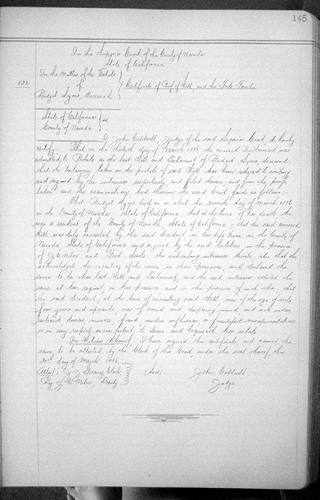 145
In the Superior Court of the County of Nevada
State of California
In the Matter of the Estate
of
Certificate of Proof of Will and the Facts Found
Bridget Lyons, Deceased
State of California
County of Nevada } ss
I, John Caldwell, Judge of the said Superior Court do hereby
certify: That on the day of March 1896 the annexed Instrument was
admitted to Probate as the last Will and Testament of Bridget Lyons, deceased
that the testimony taken on the probate of said Will has been reduced to writing
and signed by the witnesses respectively and filed herein and from the proofs
taken and the examination had therein the said Court finds as follows:
That Bridget Lyons died on or about the day of March 1896
in the County of Nevada State of California that at the time of her death she
was a resident of the County of Nevada, State of California; that the said annexed
Will was duly executed by the said decedent in her life time in the County of
Nevada State of California and signed by the said testatrix in the presence
of and the subscribing witnesses thereto; that she
acknowledged the execution of the same in their presence and declared the
same to be her last Will and Testament, and the said witnesses attested the
same at her request in her presence and in the presence of each other; that
the said decedent, at the time of executing said Will, was of the age of
years and upwards was of sound and disposing mind, and not under
restraint, duress, menace, fraud, undue influence or fraudulent misrepresentations
or in any respect incompetent to devise and bequeath her estate
In Witness Whereof, I have signed this certificate and caused the
same to be attested by the Clerk of this Court, under the seal thereof, this
30th day of March 1896
Attest: Clerk (Seal) John Caldwell
By Deputy Judge